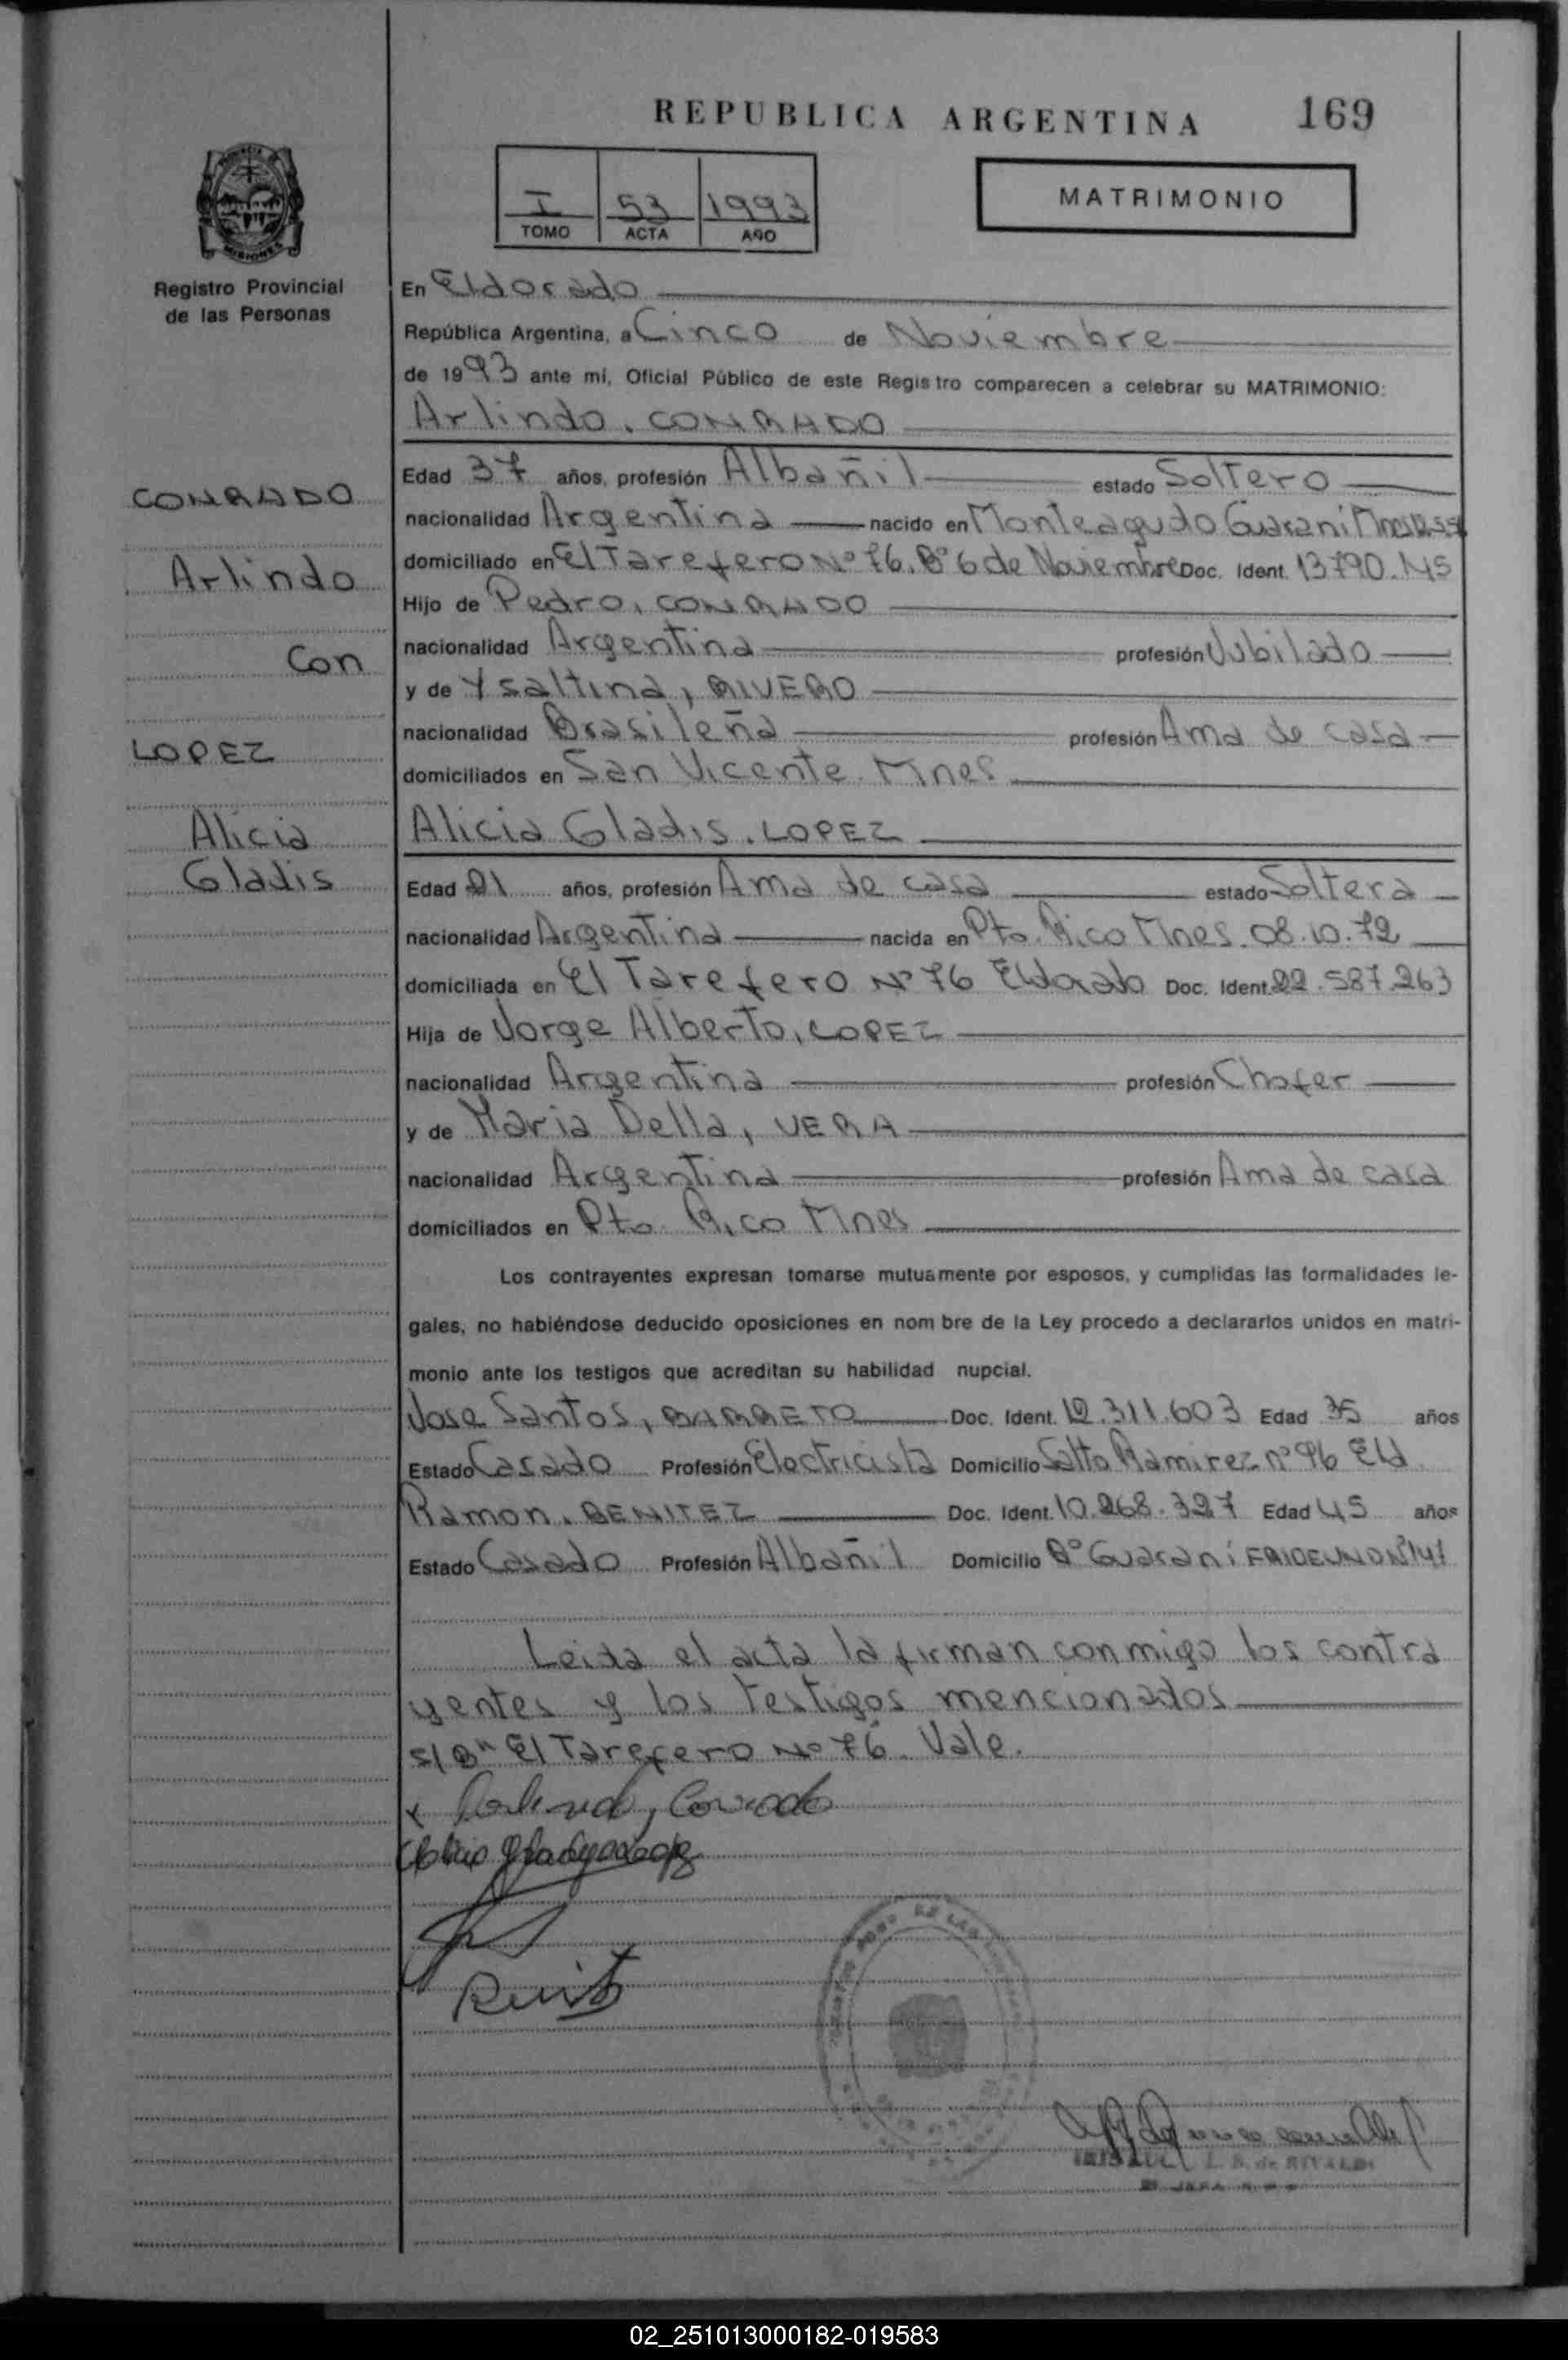 REPUBLICA ARGENTINA 169
I 53 1993
TOMO ACTA AÑO
MATRIMONIO
PROVINCIA DE MISIONES
Registro Provincial
de las Personas
En Eldorado
República Argentina, a Cinco de Noviembre
de 1993 ante mí, Oficial Público de este Registro comparecen a celebrar su MATRIMONIO:
Arlindo, CONRADO
CONRADO
Arlindo
Con
LOPEZ
Alicia
Gladis
Edad 37 años, profesión Albañil estado Soltero
nacionalidad Argentina nacido en Monteagudo Guarani
domiciliado en El Tarefero Nº 76. Bº 6 de Noviembre Doc. Ident. 13790.145
Hijo de Pedro, CONRADO
nacionalidad Argentina profesión Jubilado
y de Ysaltina, RIVERO
nacionalidad Brasileña profesión Ama de casa
domiciliados en San Vicente. Mnes
Alicia Gladis. LOPEZ
Edad 21 años, profesión Ama de casa estado Soltera
nacionalidad Argentina nacida en Pto. Rico Mnes. 08.10.72
domiciliada en El Tarefero Nº 76 Eldorado Doc. Ident. 22.587.263
Hija de Jorge Alberto, LOPEZ
nacionalidad Argentina profesión Chofer
y de Maria Della, VERA
nacionalidad Argentina profesión Ama de casa
domiciliados en Pto. Rico Mnes
Los contrayentes expresan tomarse mutuamente por esposos, y cumplidas las formalidades le-
gales, no habiéndose deducido oposiciones en nom bre de la Ley procedo a declararlos unidos en matri-
monio ante los testigos que acreditan su habilidad nupcial.
Jose Santos, BARRETO Doc. Ident. 12.311.603 Edad 35 años
Estado Casado Profesión Electricista Domicilio Salto Ramirez nº 96 Eld
Ramon. BENITEZ Doc. Ident. 10.268.327 Edad 45 años
Estado Casado Profesión Albañil Domicilio Bº Guarani
Leida el acta la firman conmigo los contra
yentes y los testigos mencionados
s/Bn El Tarefero Nº 76. Vale.
x Arlindo, Conrado
Alicia Gladys Lopez
02_251013000182-019583